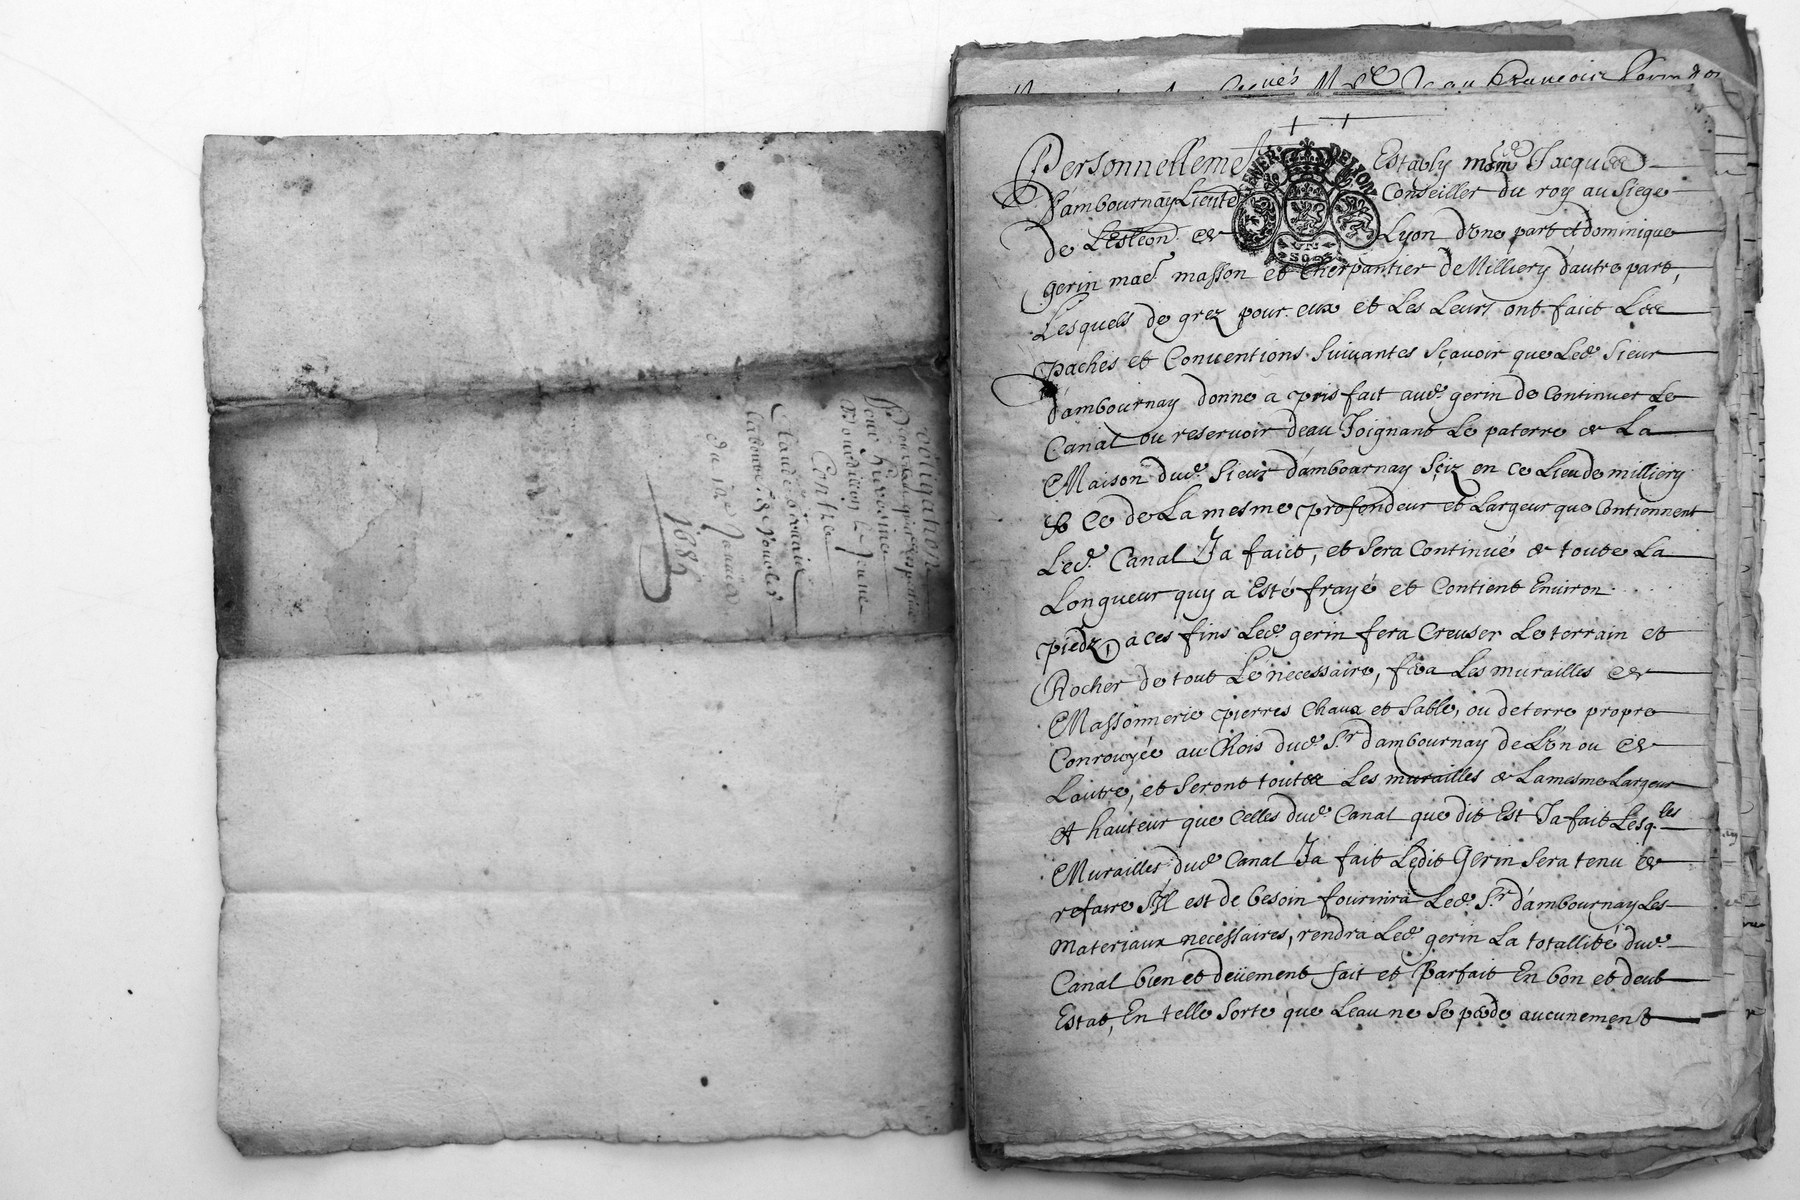 obligation
Claude
du 12e Janvier
1686
Jean francois
Personnellemet Estably Jacques
GENER. DE LYON
UN SOL
Dambournay Lieute Conseiller du roy au siege
de L'Eslection de Lyon d'une part et dominique
gerin mae. masson et cherpantier de Milliery d'autre part,
Lesquels de grez pour eux et Les Leurs ont faict Les
paches et Conventions suivantes sçavoir que Led. sieur
dambournay donne a pris fait aud. gerin de continuer Le
Canal ou reservoir deau Joignant Le paterre de La
Maison dud. sieur dambournay size en ce Lieu de milliery
& Ce de La mesme profondeur et Largeur que contiennent
Led. Canal Ja faict, et sera Continué de toute La
Longueur quy a Esté frayé et Contient Environ
piedz, a ces fins Led. gerin fera Creuser Le terrain et
Rocher de tout Le necessaire, fera Les murailles de
Massonnerie pierres chaux et sable, ou de terre propre
Conrouyée au Chois dud. Sr. dambournay de L'un ou de
Lautre, et seront toutes Les murailles de La mesme Largeur
et hauteur que celles dud. Canal que dit Est Ja fait Lesq.les
Murailles dud. Canal Ja fait Ledit Gerin sera tenu de
refaire s'Jl est de besoin fournira Led. Sr. dambournay Les
materiaux necessaires, rendra Led. gerin La totallité dud.
Canal bien et deüement fait et Parfait En bon et deub
Estat, En telle sorte que Leau ne se perde aucunement